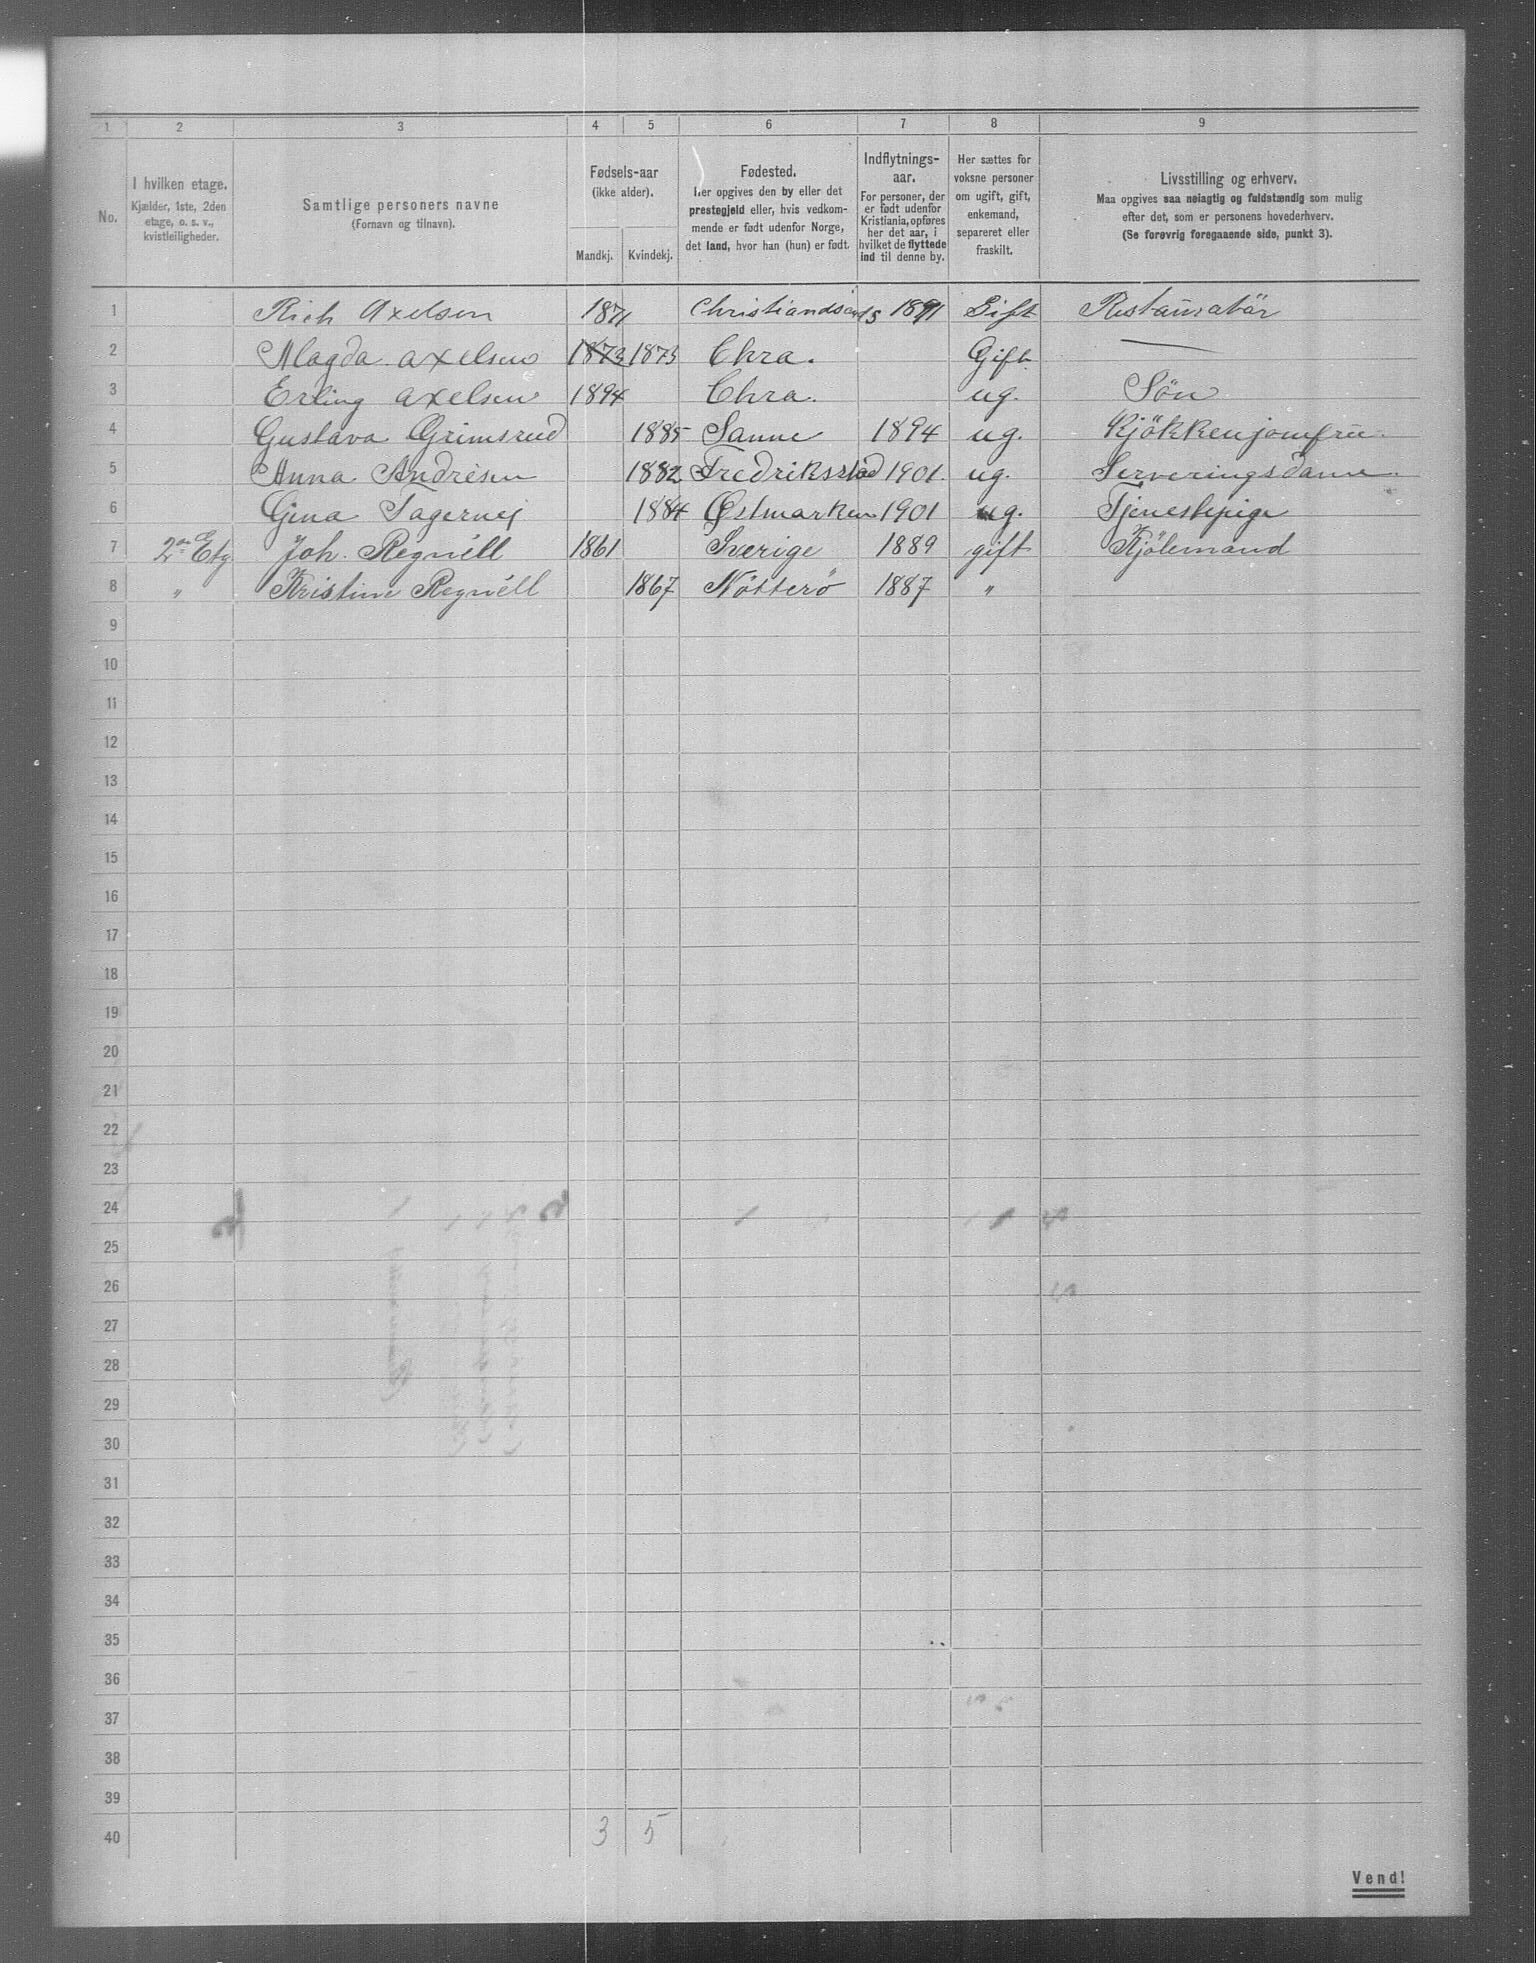 1 2 3 4 5 6 7 8 9
No.
I hvilken etage.
Kjælder, 1ste, 2den
etage, o. s. v.,
kvistleiligheder.
Samtlige personers navne
(Fornavn og tilnavn).
Fødsels-aar
(ikke alder).
Mandkj. Kvindekj.
Fødested.
Her opgives den by eller det
prestegjeld eller, hvis vedkom-
mende er født udenfor Norge,
det land, hvor han (hun) er født.
Indflytnings-
aar.
For personer, der
er født udenfor
Kristiania, opføres
her det aar, i
hvilket de flyttede
ind til denne by.
Her sættes for
voksne personer
om ugift, gift,
enkemand,
separeret eller
fraskilt.
Livsstilling og erhverv.
Maa opgives saa nøiagtig og fuldstændig som mulig
efter det, som er personens hovederhverv.
(Se forøvrig foregaaende side, punkt 3).
1 Rich Axelsen 1871 Christiandsand S 1891 Gift Restauratör
2 Magda Axelsen 1873 1873 Chra. Gift. —
3 Erling Axelsen 1894 Chra. ug. Sön
4 Gustava Grimsrud 1885 Sanne 1894 ug. Kjökkenjomfru.
5 Anna Andresen 1882 Fredriksstad 1901. ug. Serveringsdame.
6 Gina 1884 Østmarken 1901 ug. Tjenestepige
7 2den Etg. Joh. Regnéll 1861 Sverige 1889 gift Kjölemand
8 " Kristine Regnéll 1867 Nötterö 1887 "
9
10
11
12
13
14
15
16
17
18
19
20
21
22
23
24
25
26
27
28
29
30
31
32
33
34
35
36
37
38
39
40 3 5
Vend!